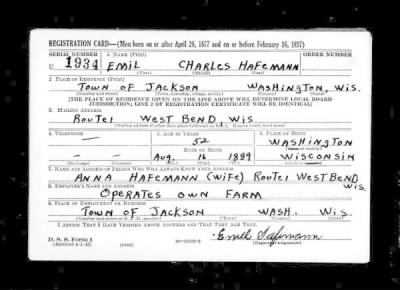 REGISTRATION CARD—(Men born on or after April 28, 1877 and on or before February 16, 1897)
SERIAL NUMBER 1. NAME (Print) ORDER NUMBER
U 1934 EMIL CHARLES HAFEMANN
(First) (Middle) (Last)
2. PLACE OF RESIDENCE (Print)
TOWN OF JACKSON WASHINGTON, WIS.
(Number and street) (Town, township, village, or city) (County) (State)
[THE PLACE OF RESIDENCE GIVEN ON THE LINE ABOVE WILL DETERMINE LOCAL BOARD
JURISDICTION; LINE 2 OF REGISTRATION CERTIFICATE WILL BE IDENTICAL]
3. MAILING ADDRESS
ROUTE 1 WEST BEND WIS
4. TELEPHONE 5. AGE IN YEARS 6. PLACE OF BIRTH
52 WASHINGTON
— — DATE OF BIRTH
Aug. 16 1889 WISCONSIN
(Exchange) (Number) (Mo.) (Day) (Yr.) (State or country)
7. NAME AND ADDRESS OF PERSON WHO WILL ALWAYS KNOW YOUR ADDRESS
ANNA HAFEMANN (WIFE) ROUTE 1 WEST BEND WIS.
8. EMPLOYER'S NAME AND ADDRESS
OPERATES OWN FARM
9. PLACE OF EMPLOYMENT OR BUSINESS
TOWN OF JACKSON WASH. WIS.
(County) (State)
I AFFIRM THAT I HAVE VERIFIED ABOVE ANSWERS AND THAT THEY ARE TRUE.
D. S. S. Form 1
(Revised 4-1-42) (over) Emil Hafemann
(Registrant's signature)